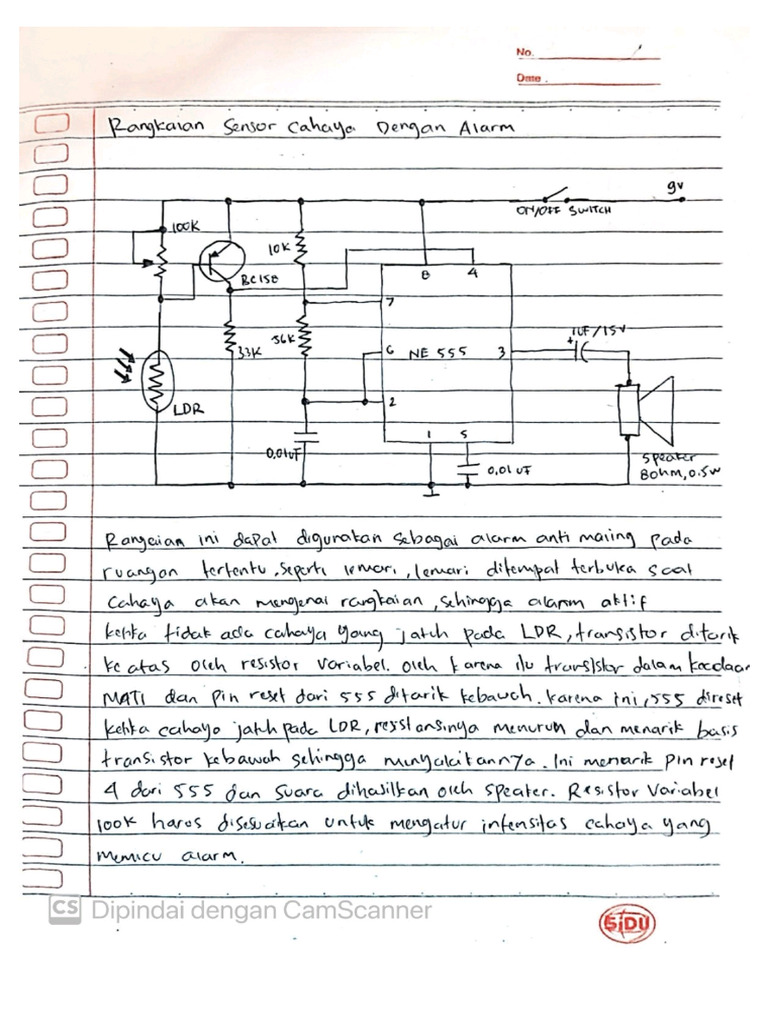 No.
Date.
Rangkaian Sensor Cahaya Dengan Alarm
9V
ON/OFF SWITCH
100K
10K
BC158
8 4
7
56K
1UF/15V
3.3K
6 NE 555 3
LDR
2
0,01UF
1 5
0,01 UF
Speaker
8ohm, 0.5W
Rangcaian ini dapat digunakan sebagai alarm anti maling pada
ruangan tertentu, seperti lemari, lemari ditempat terbuka saat
Cahaya akan mengenai rangkaian, sehingga alarm aktif
ketika tidak ada cahaya yang jatuh pada LDR, transistor ditarik
ke atas oleh resistor variabel. oleh karena itu transistor dalam keadaan
MATI dan pin reset dari 555 ditarik kebawah. karena ini, 555 direset
ketika cahaya jatuh pada LDR, resistansinya menurun dan menarik basis
transistor kebawah sehingga menyalakannya. Ini menarik pin reset
4 dari 555 dan suara dihasilkan oleh speaker. Resistor Variabel
100K harus disesuaikan untuk mengatur intensitas cahaya yang
memicu alarm.
CS Dipindai dengan CamScanner
SiDU